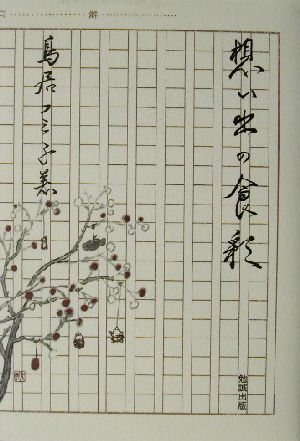 想い出の食彩
鳥居フミ子著
勉誠出版